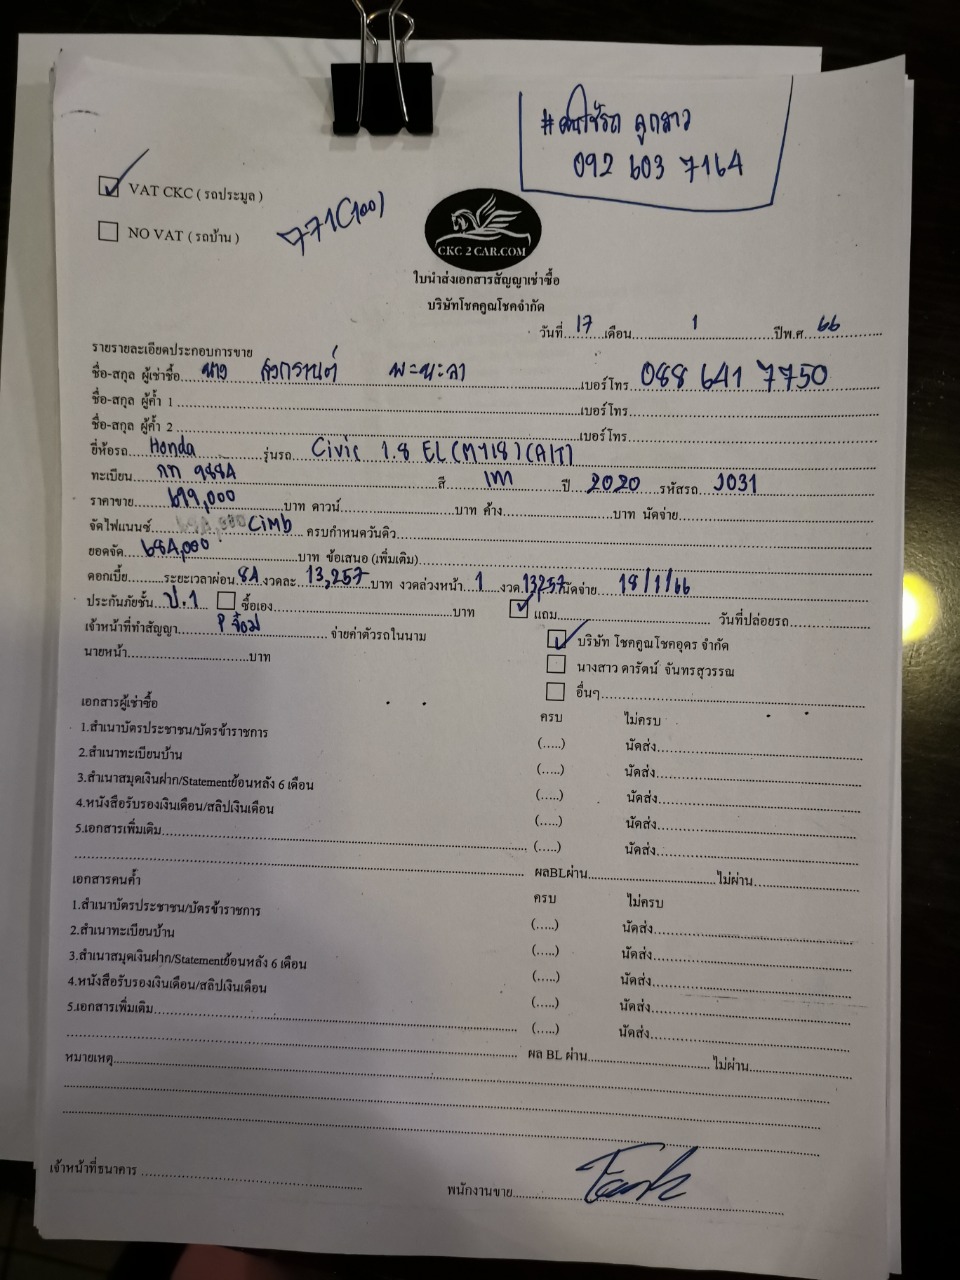 #คนใช้รถ ลูกสาว
092 603 7164
VAT CKC ( รถประมูล )
NO VAT ( รถบ้าน )
771(100)
CKC 2 CAR.COM
ใบนำส่งเอกสารสัญญาเช่าซื้อ
บริษัทโชคคูณโชคจำกัด
วันที่ 17 เดือน 1 ปีพ.ศ. 66
รายรายละเอียดประกอบการขาย
ชื่อ-สกุล ผู้เช่าซื้อ นาง สงกรานต์ พะนะลา เบอร์โทร 088 641 7750
ชื่อ-สกุล ผู้ค้ำ 1 เบอร์โทร
ชื่อ-สกุล ผู้ค้ำ 2 เบอร์โทร
ยี่ห้อรถ Honda รุ่นรถ Civic 1.8 EL (MY18) (A/T)
ทะเบียน กท 9884 สี เทา ปี 2020 รหัสรถ 2031
ราคาขาย 699,000 บาท ดาวน์ บาท ค้าง บาท นัดจ่าย
จัดไฟแนนซ์ CIMB ครบกำหนดวันคิว
ยอดจัด 684,000 บาท ข้อเสนอ (เพิ่มเติม)
ดอกเบี้ย ระยะเวลาผ่อน 84 งวดละ 13,257 บาท งวดล่วงหน้า 1 งวด 13257 นัดจ่าย 18/1/66
ประกันภัยชั้น ป.1 ซื้อเอง บาท แถม วันที่ปล่อยรถ
เจ้าหน้าที่ทำสัญญา จ่ายค่าตัวรถในนาม
บริษัท โชคคูณโชคอุดร จำกัด
นายหน้า บาท
นางสาว ดารัตน์ จันทรสุวรรณ
อื่นๆ
เอกสารผู้เช่าซื้อ ครบ ไม่ครบ
1.สำเนาบัตรประชาชน/บัตรข้าราชการ (.....) นัดส่ง
2.สำเนาทะเบียนบ้าน (.....) นัดส่ง
3.สำเนาสมุดเงินฝาก/Statementย้อนหลัง 6 เดือน (.....) นัดส่ง
4.หนังสือรับรองเงินเดือน/สลิปเงินเดือน (.....) นัดส่ง
5.เอกสารเพิ่มเติม (.....) นัดส่ง
ผลBLผ่าน ไม่ผ่าน
เอกสารคนค้ำ ครบ ไม่ครบ
1.สำเนาบัตรประชาชน/บัตรข้าราชการ (.....) นัดส่ง
2.สำเนาทะเบียนบ้าน (.....) นัดส่ง
3.สำเนาสมุดเงินฝาก/Statementย้อนหลัง 6 เดือน (.....) นัดส่ง
4.หนังสือรับรองเงินเดือน/สลิปเงินเดือน (.....) นัดส่ง
5.เอกสารเพิ่มเติม (.....) นัดส่ง
ผล BL ผ่าน ไม่ผ่าน
หมายเหตุ
เจ้าหน้าที่ธนาคาร
พนักงานขาย